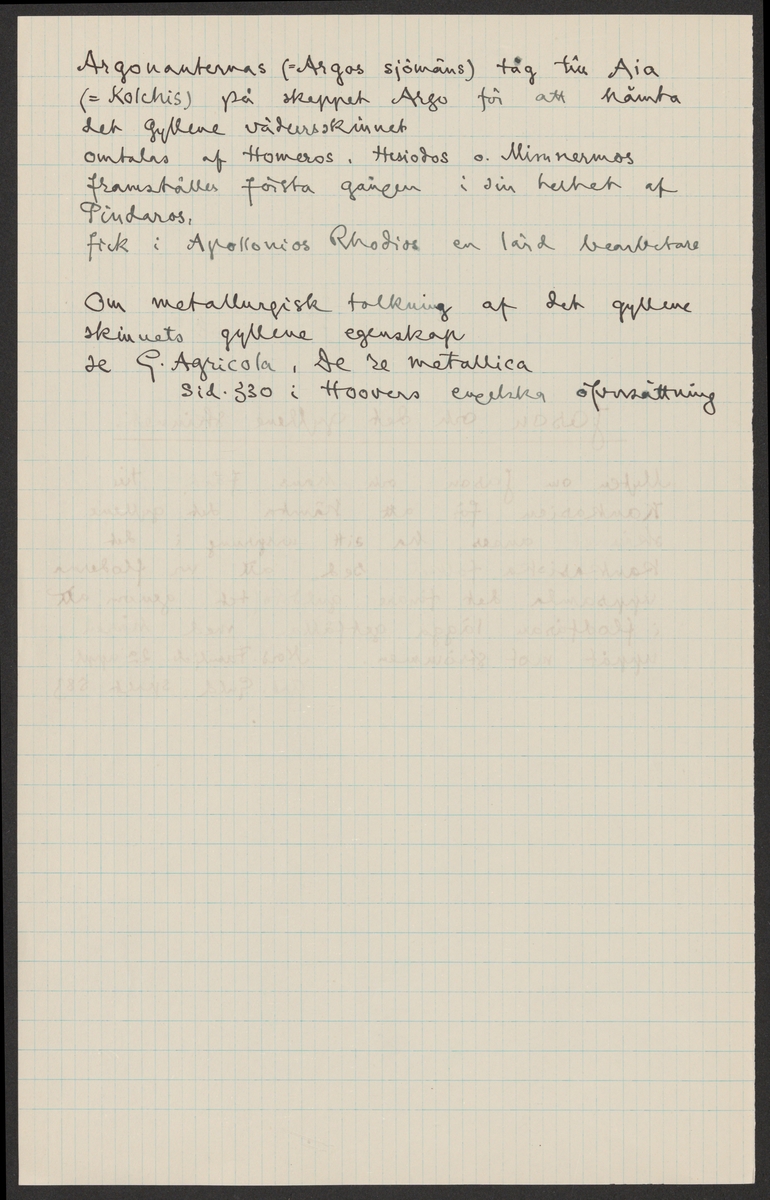 Argonauternas (=Argos sjömäns) tåg till Aia
(= Kolchis) på skeppet Argo för att hämta
det gyllene vädursskinnet
omtalas af Homeros, Hesiodos o. Mimnermos
framställes första gången i sin helhet af
Pindaros,
fick i Apollonios Rhodios en lärd bearbetare
Om metallurgisk tolkning af det gyllene
skinnets gyllene egenskap
se G. Agricola, De re metallica
Sid. 330 i Hoovers engelska öfversättning